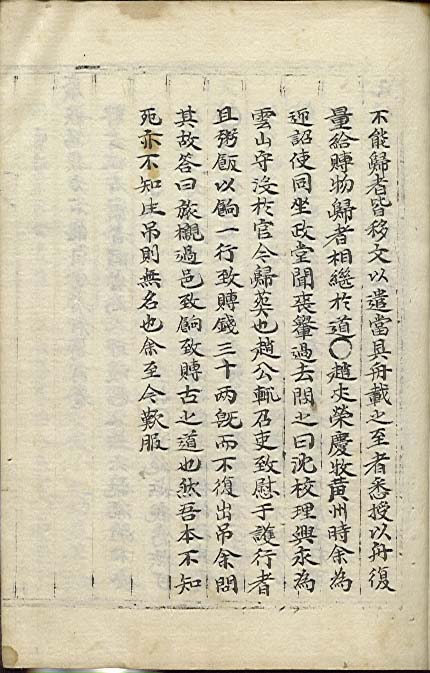 不能歸者皆移文以遣當具舟載之至者悉授以舟復
量給賻物歸者相繼於道○趙夬榮慶牧黃州時余爲
迎詔使同坐政堂聞喪轝過去問之曰沈校理興永爲
雲山守沒於官今歸葬也趙公輒召吏致慰于護行者
且粥飯以餉一行致賻錢三十兩旣而不復出吊余問
其故答曰旅櫬過邑致餉致賻古之道也然吾本不知
死亦不知生吊則無名也余至今歎服